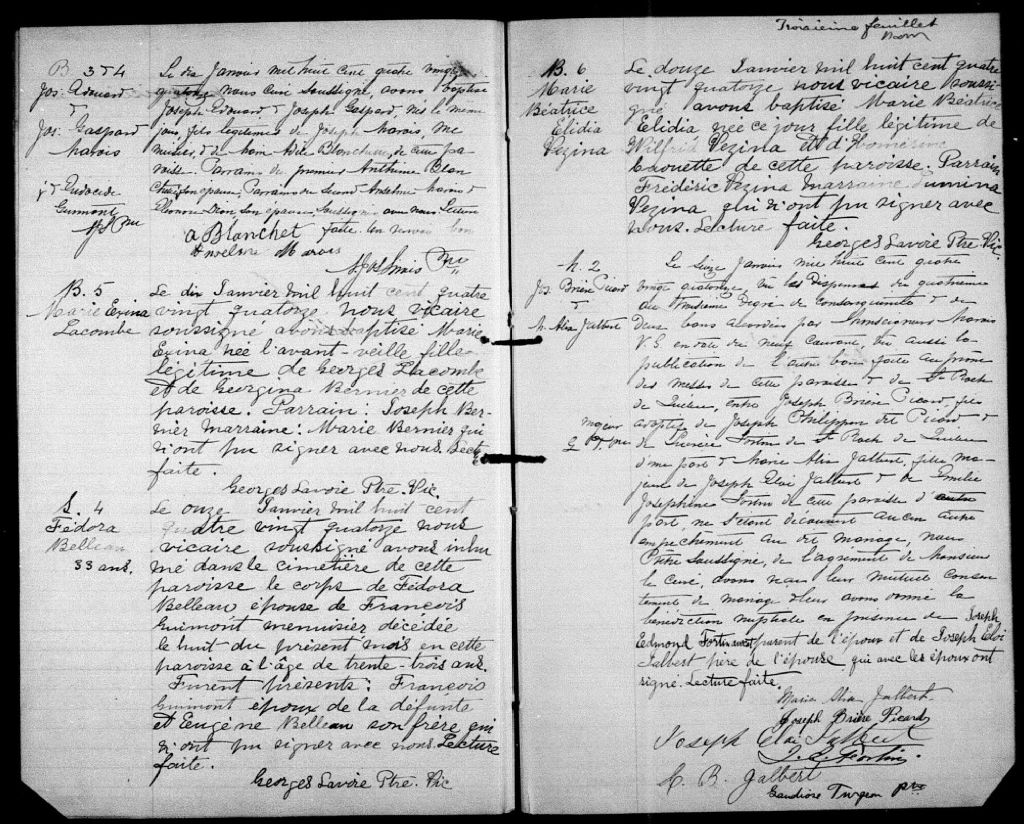 B 3 & 4
Jos. Edouard
&
Jos. Gaspard
Marois
Le dix Janvier mil huit cent quatre vingt
quatorze nous Curé soussigné, avons baptisé
Joseph Edouard & Joseph Gaspard, nés le même
jour, fils légitimes de Joseph Marois,
& de
Parrain du premier Anthime Blan
chet son épouse. Parrain du second Anselme Marois &
Eléonore Dion son épouse, soussignés avec nous. Lecture
faite.
A Blanchet
Anselme Marois
B. 5
Marie Exina
Lacombe
Le dix Janvier mil huit cent quatre
vingt quatorze nous vicaire
soussigné avons baptisé Marie
Exina née l'avant-veille fille
légitime de Georges Lacombe
et de Georgina Bernier de cette
paroisse. Parrain: Joseph Ber-
nier Marraine: Marie Bernier qui
n'ont pu signer avec nous. Lect.
faite.
Georges Savoie Ptre. Vic.
S. 4
Fédora
Belleau
33 ans.
Le onze Janvier mil huit cent
quatre vingt quatorze nous
vicaire soussigné avons inhu
mé dans le cimetière de cette
paroisse le corps de Fédora
Belleau épouse de François
Guimont menuisier décédée
le huit du présent mois en cette
paroisse à l'âge de trente-trois ans.
Furent présents: François
Guimont époux de la défunte
et Eugène Belleau son frère qui
n'ont pu signer avec nous. Lecture
faite.
Georges Savoie Ptre. Vic
Troisième feuillet
B. 6
Marie
Béatrice
Elidia
Vezina
Le douze Janvier mil huit cent quatre
vingt quatorze nous vicaire soussi-
gné avons baptisé Marie Béatrice
Elidia née ce jour fille légitime de
Wilfrid Vezina et d'
de cette paroisse. Parrain
Frédéric Vezina Marraine
Vezina qui n'ont pu signer avec
nous. Lecture faite.
Georges Savoie Ptre. Vic.
M. 2
Jos. Brière Picard
&
M. Alia Jalbert
Le seize Janvier mil huit cent quatre
vingt quatorze, vu les dispenses du quatrième
au troisième degré de consanguinité & de
deux bans accordées par Monseigneur Marois
V.G. en date du neuf courant, vu aussi la
publication de l'autre ban faite au prône
des messes de cette paroisse & de St Roch
de Québec, entre Joseph Brière Picard, fils
majeur
adoptif de Joseph Philippe dit Picard &
de Fortin de St Roch de Québec
d'une part & Marie Alia Jalbert, fille ma-
jeure de Joseph Eloi Jalbert & de Emilie
Joséphine Fortin de cette paroisse d'autre
part, ne s'étant découvert aucun autre
empêchement au dit mariage, nous
Prêtre soussigné, de l'agrément de Monsieur
le Curé, avons reçu leur mutuel consen
tement de mariage & leur avons donné la
bénédiction nuptiale en présence de Joseph
Edmond Fortin parent de l'époux et de Joseph Eloi
Jalbert père de l'épouse qui avec les époux ont
signé. Lecture faite.
Marie Alia Jalbert
Joseph Brière Picard
Joseph Eloi Jalbert
J. E. Fortin
H. B. Jalbert
Gaudiose Turgeon ptre